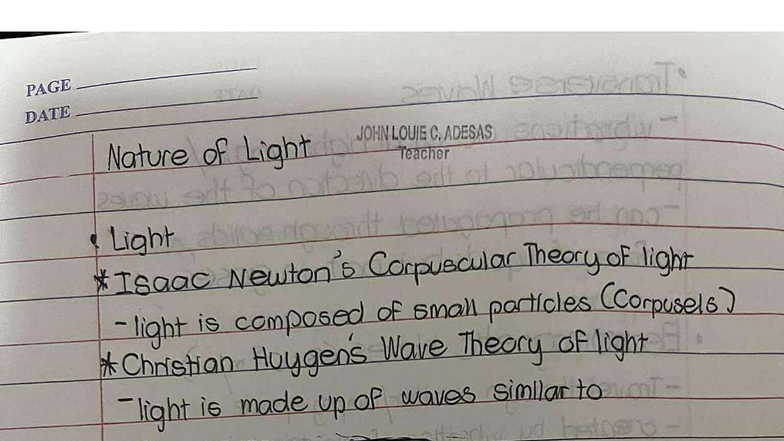 PAGE
DATE
JOHN LOUIE C. ADESAS
Teacher
Nature of Light
• Light
* Isaac Newton's Corpuscular Theory of light
- light is composed of small particles (Corpusels)
* Christian Huygen's Wave Theory of light
- light is made up of waves similar to